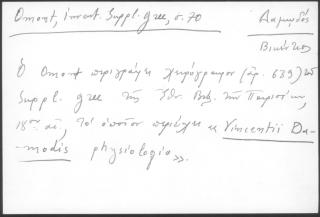 Omont, invent. Suppl. grec, σ. 70
Δαμιηδός
Βικέντιος
Ὁ Omont περιγράφει χειρόγραφον (ἀρ. 639) τοῦ
Suppl. grec τῆς Ἐθν. Βιβ. τῶν Παρισίων,
18ου αἰ, τὸ ὁποῖον περιέχει «Vincentii Da-
modis physiologia».